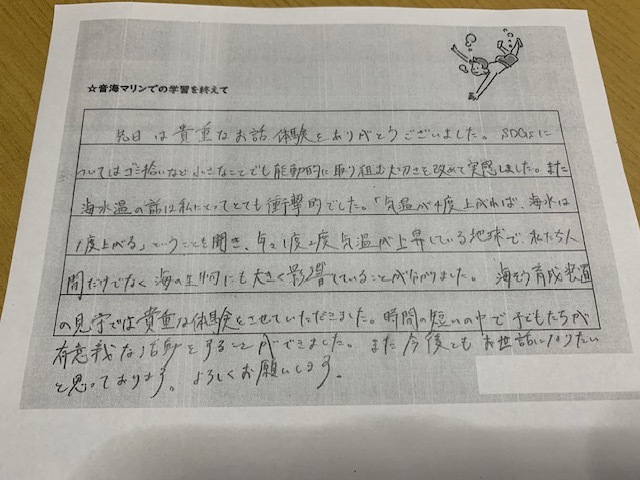 ☆音海マリンでの学習を終えて
先日は貴重なお話、体験をありがとうございました。SDGsに
ついてはゴミ拾いなど小さなことでも能動的に取り組む大切さを改めて実感しました。また
海水温の話は私にとってとても衝撃的でした。「気温が4度上がれば、海水は
1度上がる」ということを聞き、年々1度2度気温が上昇している地球で、私たち人
間だけでなく海の生物にも大きく影響していることが分かりました。海そう育成装置
の見学では貴重な体験をさせていただきました。時間の短いの中で子どもたちが
有意義な活動をすることができました。また今後ともお世話になりたい
と思っております。よろしくお願いします。